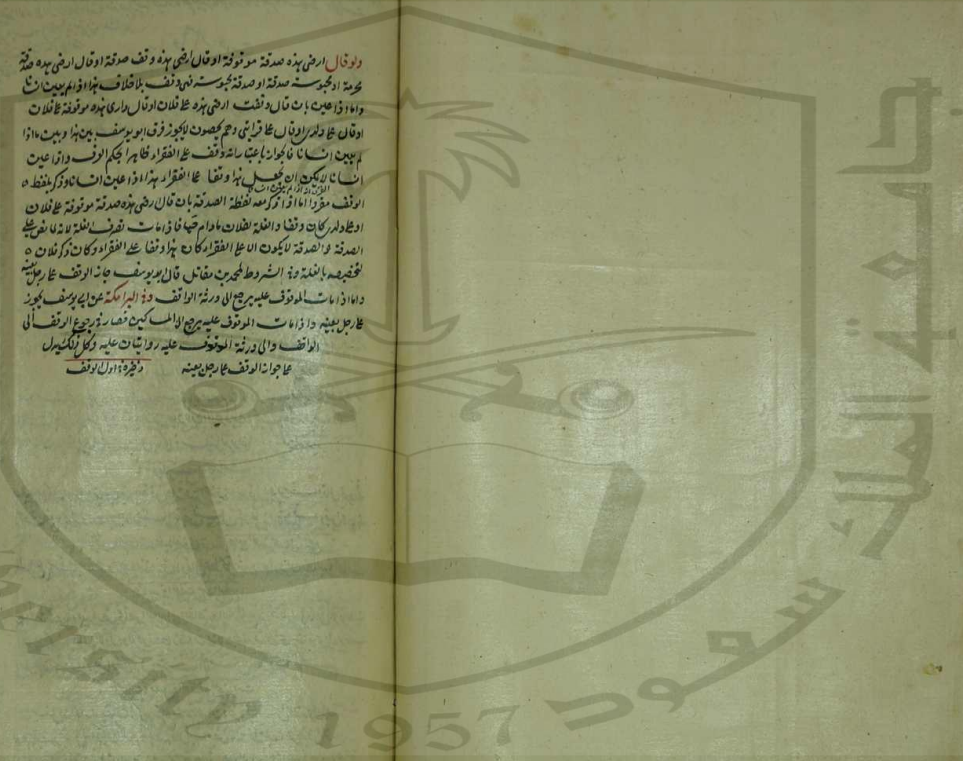 ولو قال ارضى هذه صدقة موقوفة او قال ارضى هذه وقف صدقة او قال ارضى هذه صدقة
محرمة او محبوسة صدقة او صدقة محبوسة فهى وقف بلا خلاف هذا اذا لم يعين انسانا
واما اذا عين بان قال وقفت ارضى هذه على فلان او قال دارى هذه موقوفة على فلان
او قال على ولدى او قال على قرابتى وهم يحصون لا يجوز فرق ابو يوسف بين هذا وبين ما اذا
لم يعين انسانا فالجواز باعتبار انه وقف على الفقراء ظاهرا بحكم الوقف واذا عين
انسانا لا يمكن ان نجعل هذا وقفا على الفقراء هذا اذا عين انسانا وذكر بلفظة
الوقف مفردا اما اذا ذكر معه لفظة الصدقة بان قال ارضى هذه صدقة موقوفة على فلان
او على ولدى كان وقفا والغلة لفلان ما دام حيا فاذا مات تصرف الغلة لانه لما نص على
الصدقة والصدقة لا يكون الا على الفقراء كان هذا وقفا على الفقراء وكان ذكر فلان
لتخصيصه بالغلة وفى الشروط لمحمد بن مقاتل قال ابو يوسف جاز الوقف على رجل بعينه
واما اذا مات الموقوف عليه يرجع الى ورثة الواقف وفى البرامكة عن ابى يوسف يجوز
على رجل بعينه واذا مات الموقوف عليه يرجع الى المساكين فصار فى رجوع الوقف الى
الواقف والى ورثة الموقوف عليه روايتان عليه وكل ذلك يدل
على جواز الوقف على رجل بعينه ذخيرة فى اول الوقف
جامعة الملك سعود
1957